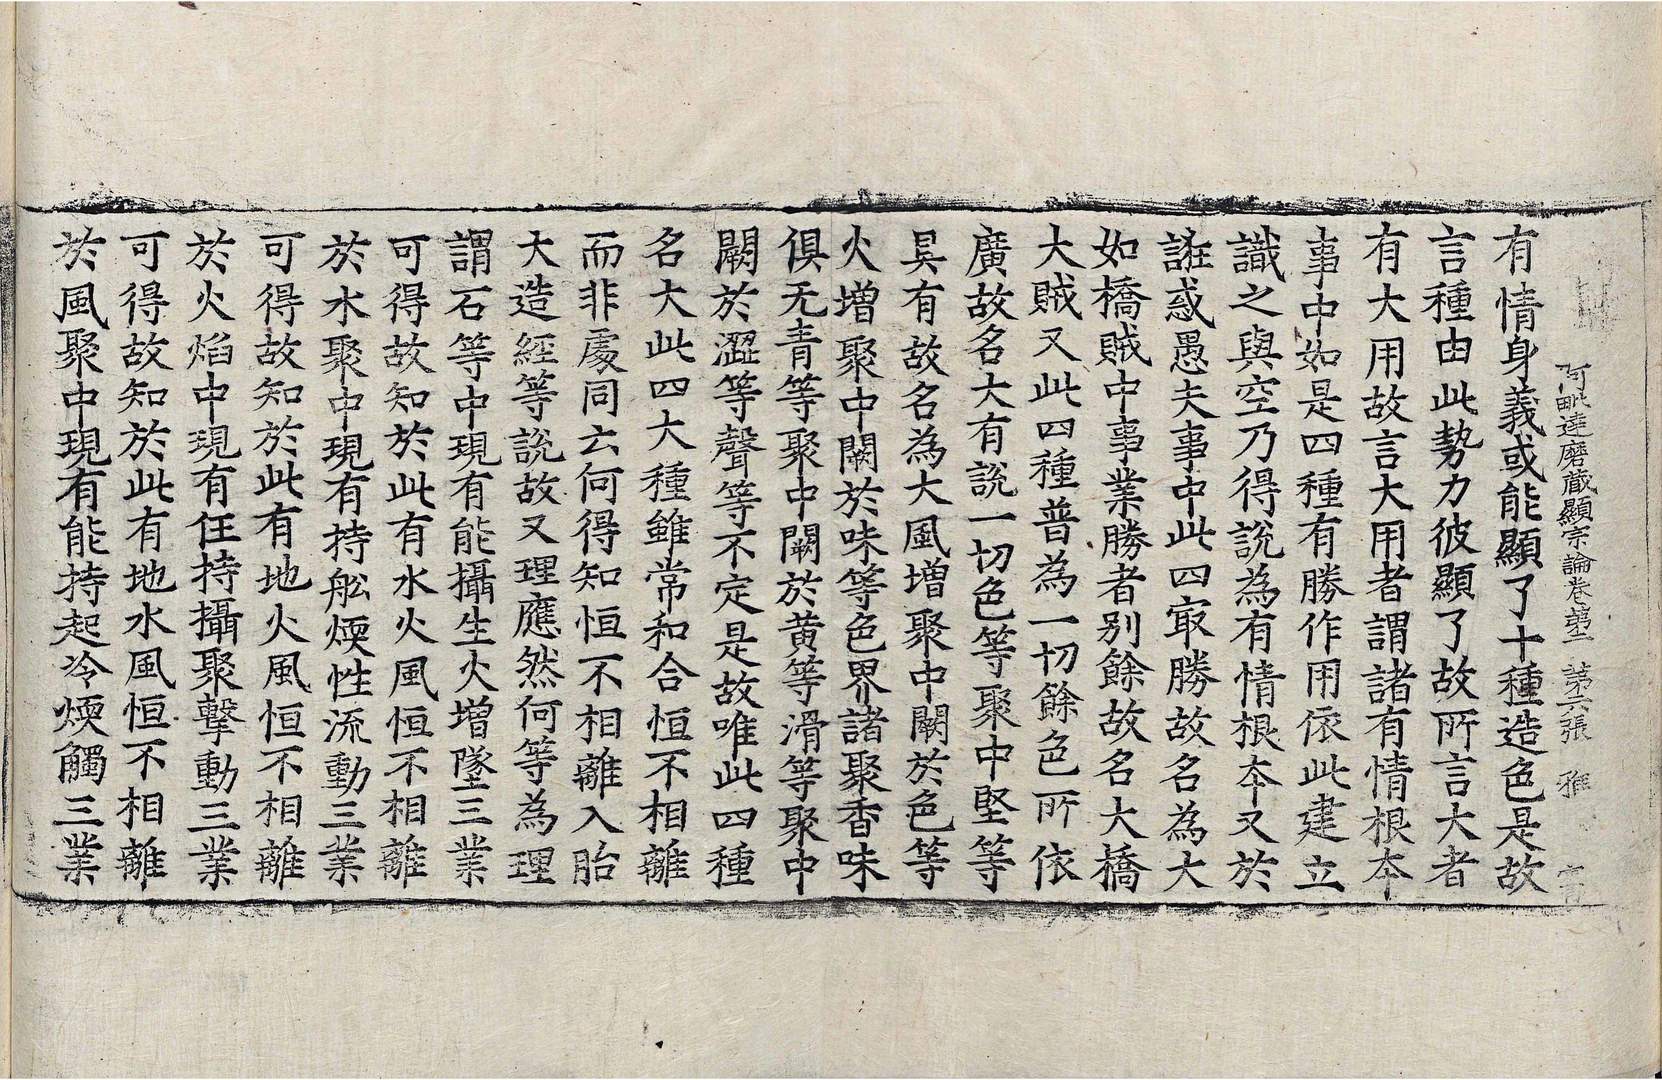 阿毗達磨藏顯宗論卷第二 第六張 雅
有情身義或能顯了十種造色是故
言種由此勢力彼顯了故所言大者
有大用故言大用者謂諸有情根本
事中如是四種有勝作用依此建立
識之與空乃得說為有情根本又於
誑惑愚夫事中此四㝡勝故名為大
如橋賊中事業勝者別餘故名大橋
大賊又此四種普為一切餘色所依
廣故名大有說一切色等聚中堅等
具有故名為大風增聚中闕於色等
火增聚中闕於味等色界諸聚香味
俱无青等聚中闕於黃等滑等聚中
闕於澀等聲等不定是故唯此四種
名大此四大種雖常和合恒不相離
而非處同云何得知恒不相離入胎
大造經等說故又理應然何等為理
謂石等中現有能攝生火增墜三業
可得故知於此有水火風恒不相離
於水聚中現有持舩煗性流動三業
可得故知於此有地火風恒不相離
於火焰中現有任持攝聚擊動三業
可得故知於此有地水風恒不相離
於風聚中現有能持起冷煗觸三業